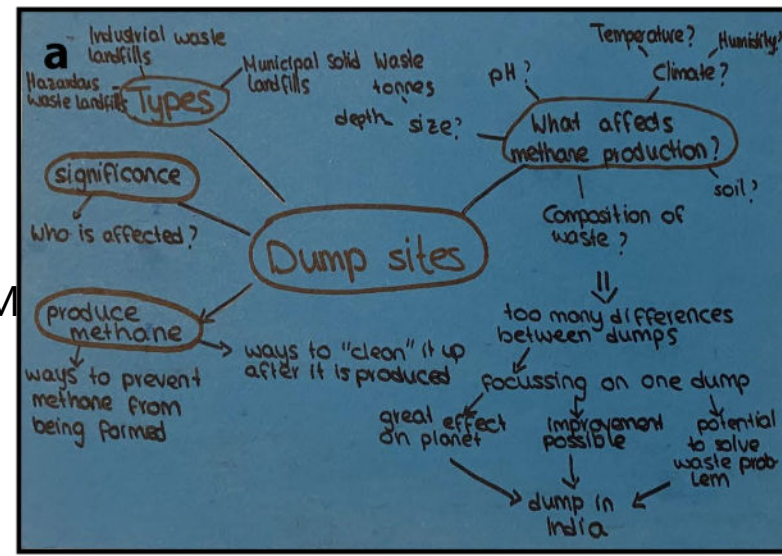 a
Industrial waste
landfills
Hazardous
waste landfills
Types
Municipal Solid Waste
landfills
significance
who is affected?
Dump sites
M
produce
methane
ways to prevent
methane from
being formed
ways to "clean" it up
after it is produced
What affects
methane production?
pH?
Temperature?
Humidity?
Climate?
tonnes
depth
size?
soil?
Composition of
waste?
too many differences
between dumps
focussing on one dump
great effect
on planet
improvement
possible
potential
to solve
waste prob-
lem
dump in
India